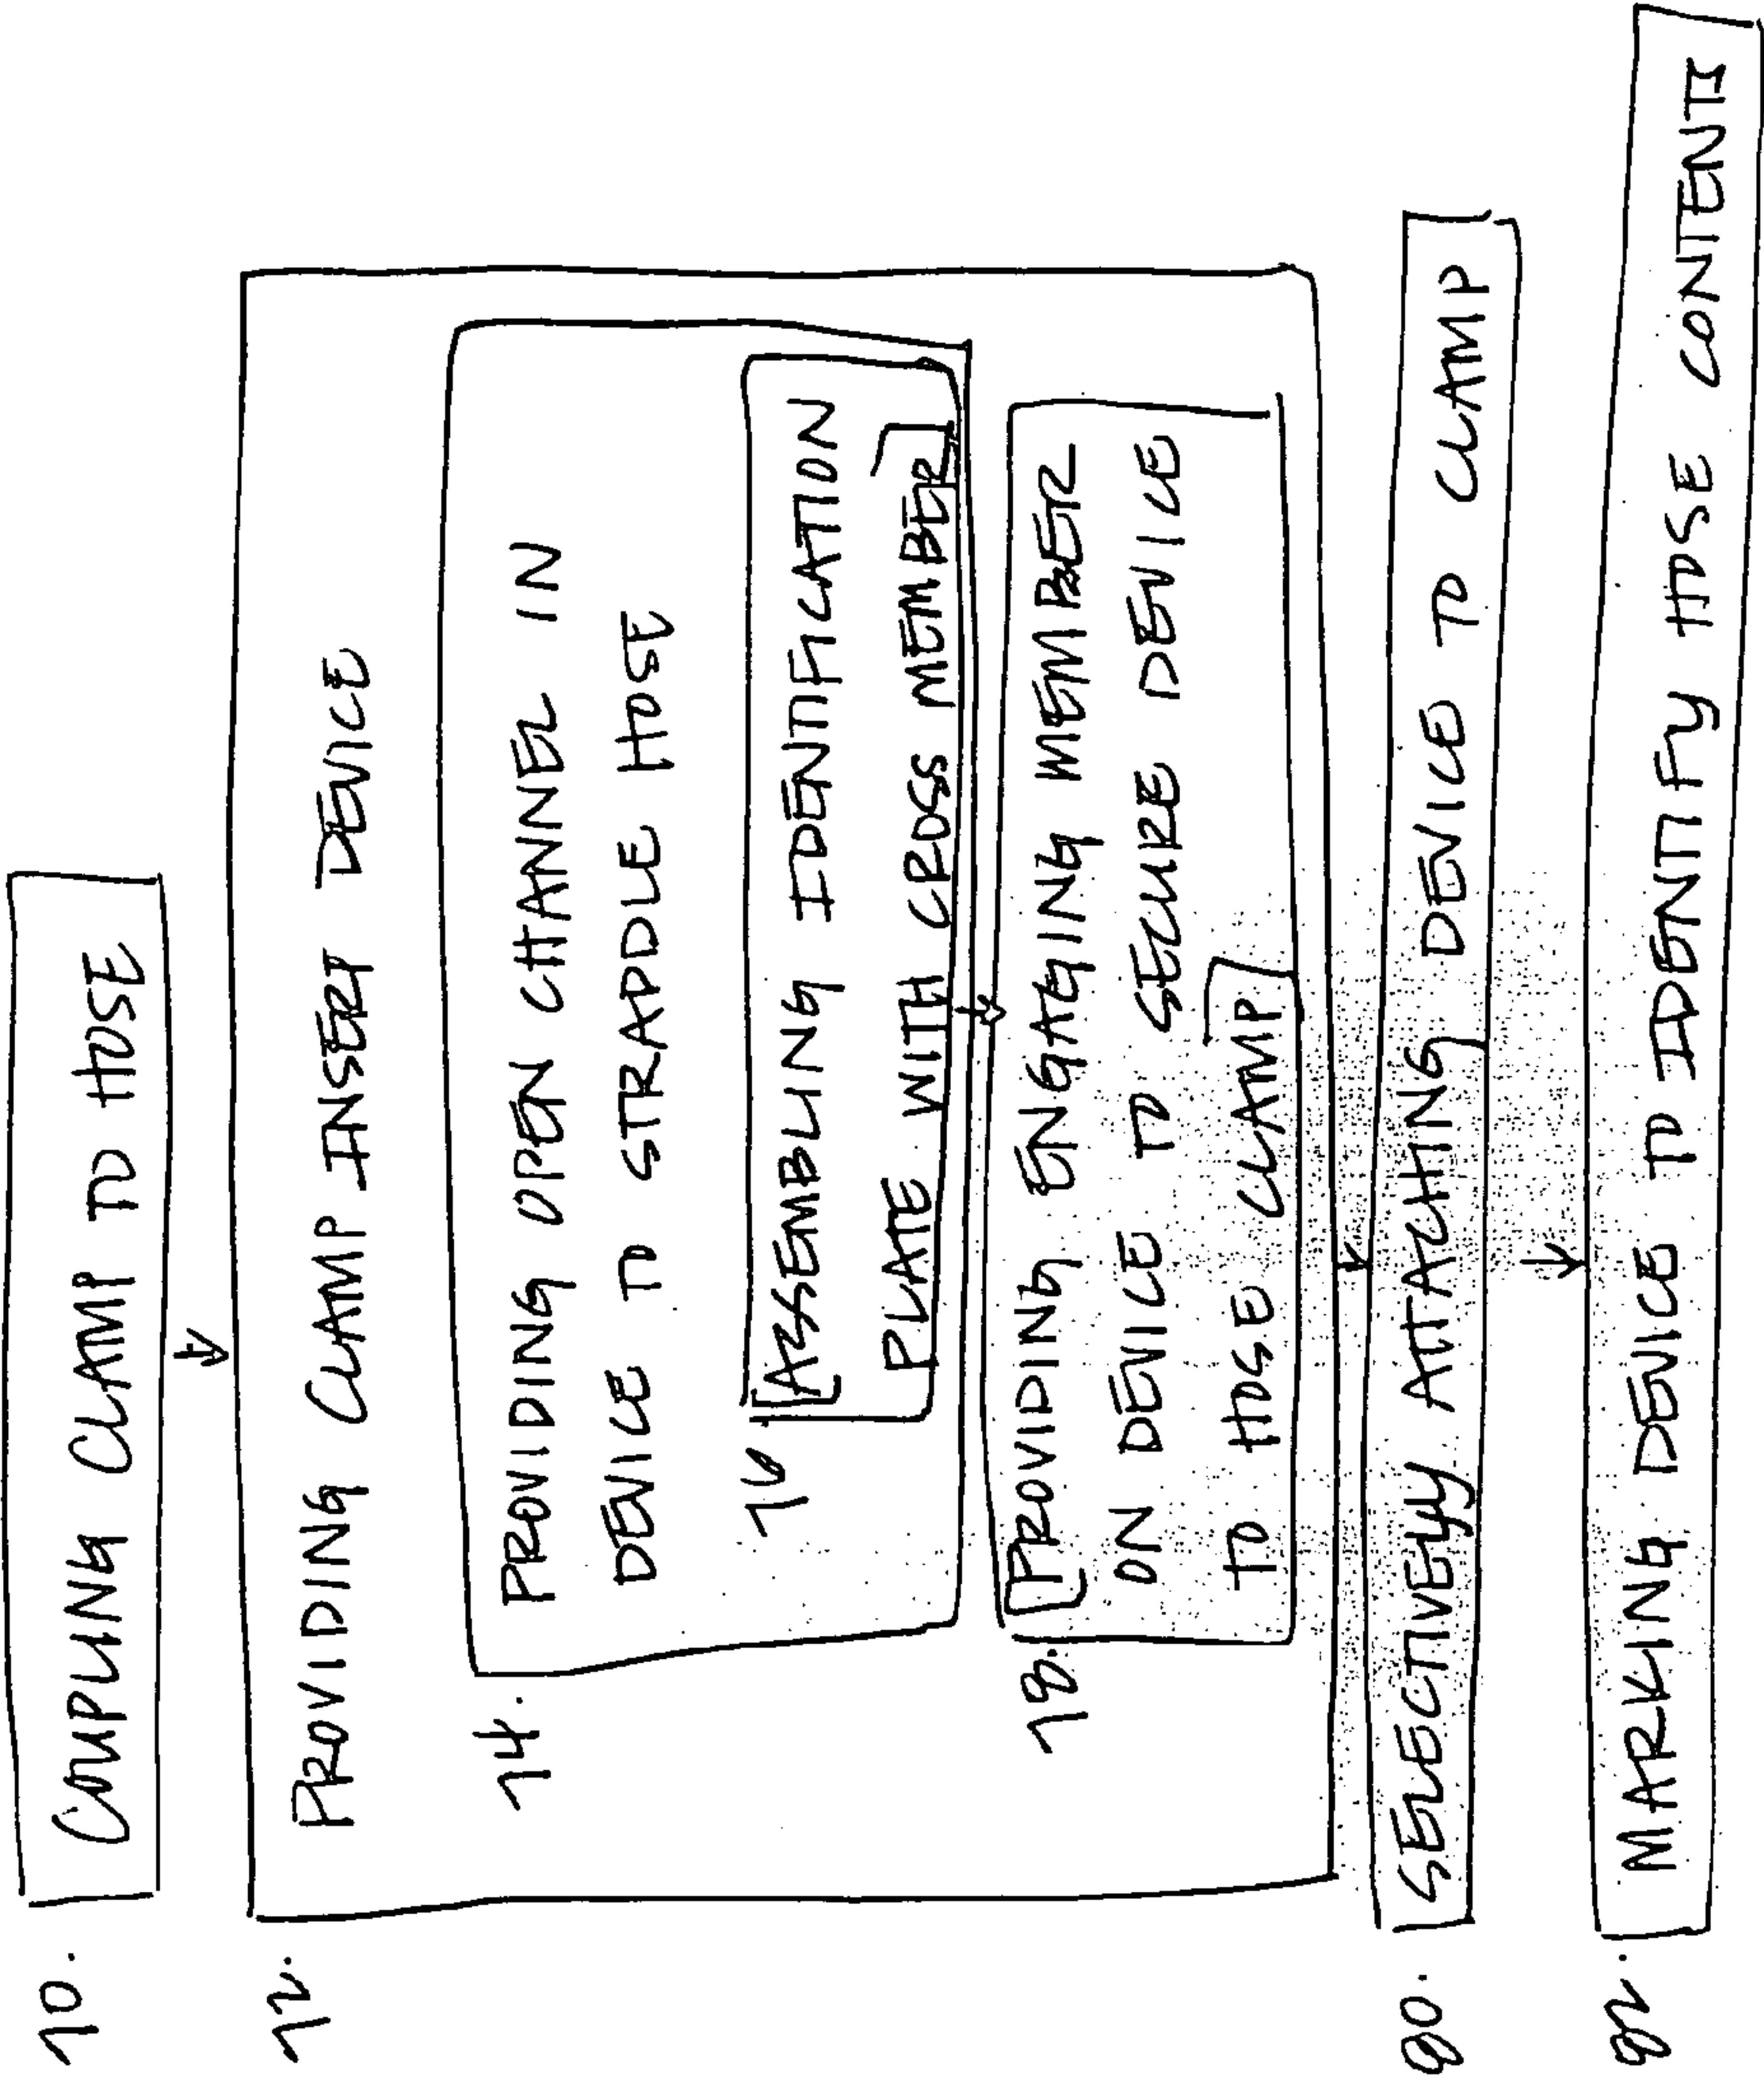 70. COUPLING CLAMP TO HOSE
72. PROVIDING CLAMP INSERT DEVICE
74. PROVIDING OPEN CHANNEL IN
DEVICE TO STRADDLE HOSE
76 ASSEMBLING IDENTIFICATION
PLATE WITH CROSS MEMBER
78. PROVIDING ENGAGING MEMBER
ON DEVICE TO SECURE DEVICE
TO HOSE CLAMP
80. SELECTIVELY ATTACHING DEVICE TO CLAMP
82. MARKING DEVICE TO IDENTIFY HOSE CONTENTS